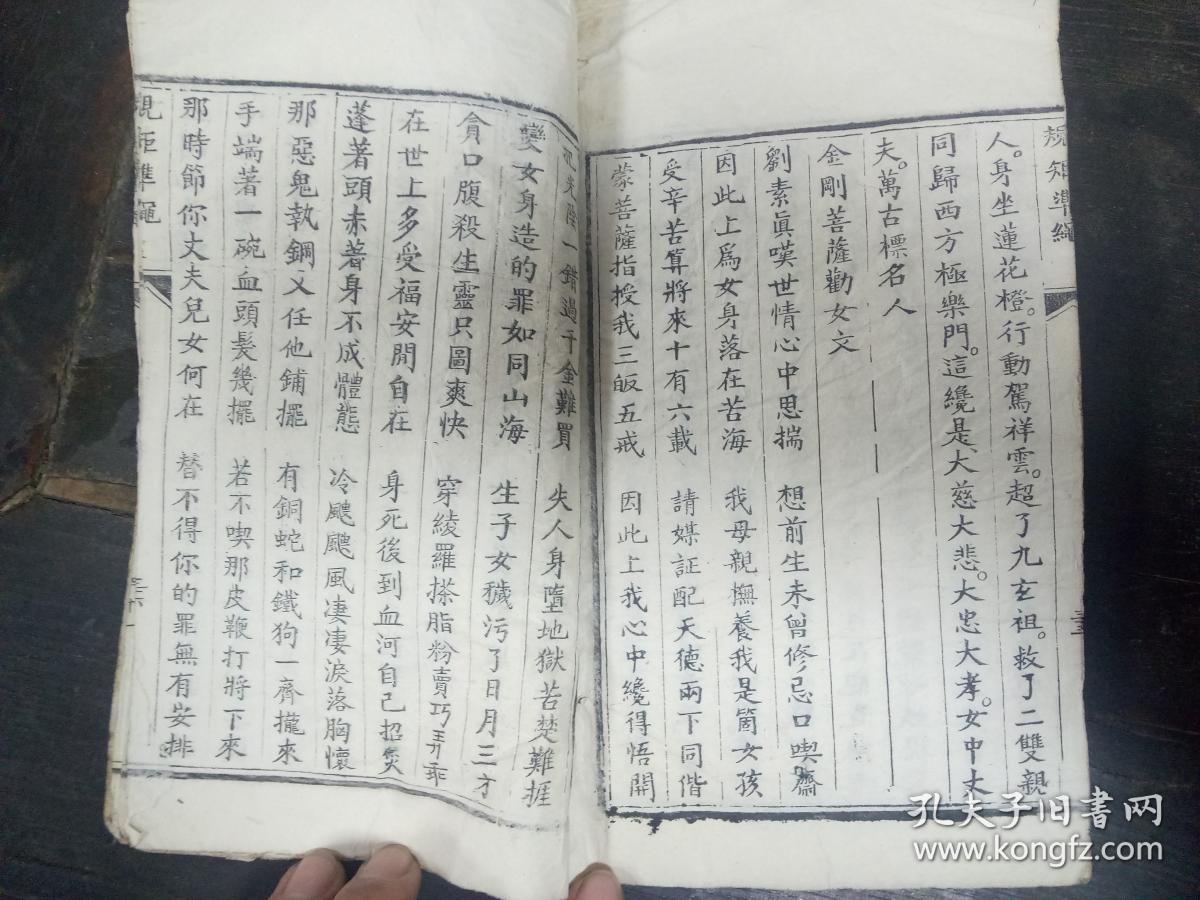 規矩準繩
人。身坐蓮花橙。行動駕祥雲。超了九玄祖。救了二雙親
同歸西方極樂門。這纔是大慈大悲。大忠大孝。女中丈
夫。萬古標名人
金剛菩薩勸女文
劉素眞嘆世情心中思揣 想前生未曾修忌口喫齋
因此上爲女身落在苦海 我母親撫養我是箇女孩
受辛苦算將來十有六載 請媒証配天德兩下同偕
蒙菩薩指授我三皈五戒 因此上我心中纔得悟開
光陰一錯過千金難買 失人身墮地獄苦楚難捱
變女身造的罪如同山海 生子女穢污了日月三才
貪口腹殺生靈只圖爽快 穿綾羅搽脂粉賣巧弄乖
在世上多受福安閒自在 身死後到血河自己招災
蓬著頭赤著身不成體態 冷颼颼風凄凄淚落胸懷
那惡鬼執鋼叉任他鋪擺 有銅蛇和鐵狗一齊攏來
手端著一碗血頭髮幾擺 若不喫那皮鞭打將下來
那時節你丈夫兒女何在 替不得你的罪無有安排
規矩準繩
孔夫子旧书网
www.kongfz.com